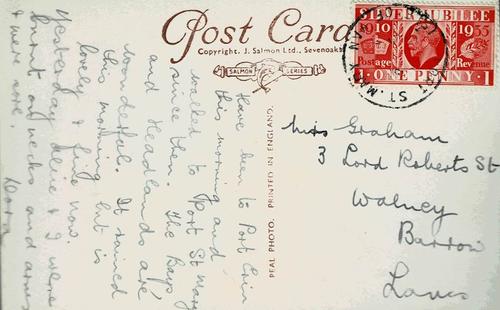 Post Card
Copyright. J. Salmon Ltd., Sevenoaks
SALMON SERIES
SILVER JUBILEE
1910 1935
Postage Revenue
ONE PENNY 1
ST. MA
REAL PHOTO. PRINTED IN ENGLAND.
Have been to Port Erin
this morning and
walked to Port St Mary
since then. The Bays
and Headlands are
wonderful. It rained
this morning but is
lovely & fine now.
Yesterday & I were
burnt on necks and arms
& were sore.
Dora
Miss Graham
3 Lord Roberts St
Walney
Barrow
Lancs